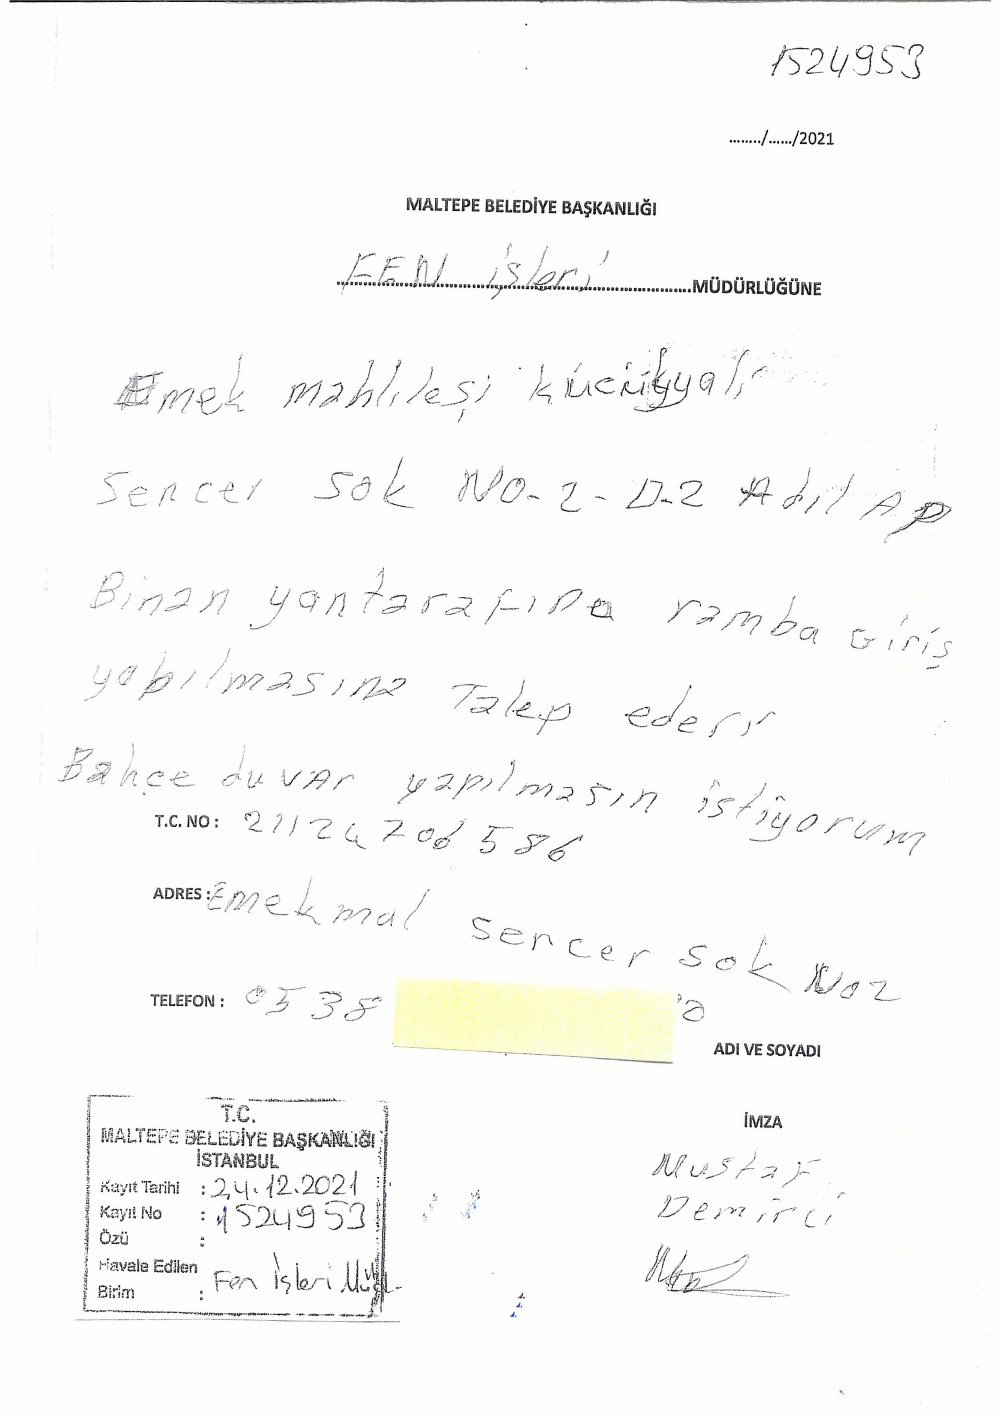 1524953
......../....../2021
MALTEPE BELEDİYE BAŞKANLIĞI
FEN işleri MÜDÜRLÜĞÜNE
Emek mahlileşi kücükyalı
Sencer Sok NO-2-D-2 Adil AP
Binan yantarafına ramba Giriş
yabılmasına Talep ederı
Bahçe duvar yapılmasın istiyorum
T.C. NO : 21124706586
ADRES : Emek mal Sencer sok No2
TELEFON : 0538
ADI VE SOYADI
İMZA
Mustaf
Demirci
T.C.
MALTEPE BELEDİYE BAŞKANLIĞI
İSTANBUL
Kayıt Tarihi : 24.12.2021
Kayıt No : 1524953
Özü :
Havale Edilen
Birim : Fen İşleri Müd.